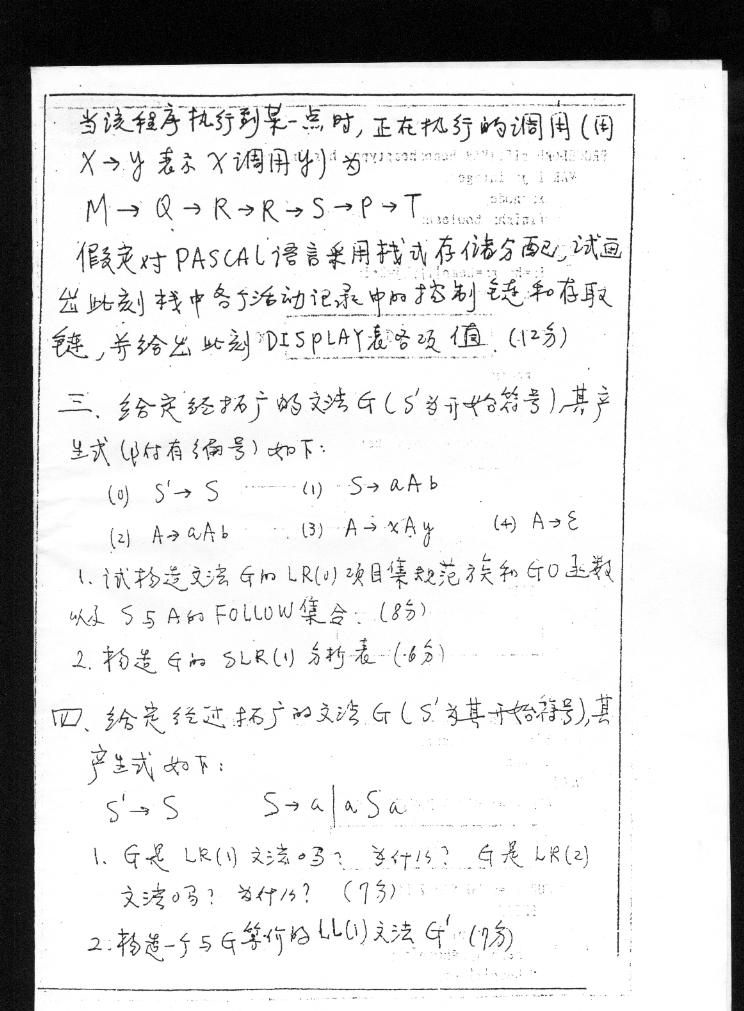 当该程序执行到某一点时,正在执行的调用(用
X→y 表示 X调用y) 为
M→Q→R→R→S→P→T
假定对PASCAL语言采用栈式存储分配,试画
出此刻栈中各个活动记录中的控制链和存取
链,并给出此刻DISPLAY表各项值.(12分)
三、给定经拓广的文法G(S'为开始符号),其产
生式(附有编号)如下:
(0) S'→S (1) S→aAb
(2) A→aAb (3) A→xAy (4) A→ε
1.试构造文法G的LR(0)项目集规范族和GO函数
以及S与A的FOLLOW集合.(8分)
2.构造G的SLR(1)分析表(6分)
四、给定经过拓广的文法G(S'为其开始符号),其
产生式如下:
S'→S S→a|aSa
1.G是LR(1)文法吗? 为什么? G是LR(2)
文法吗? 为什么? (7分)
2.构造一个与G等价的LL(1)文法G' (7分)